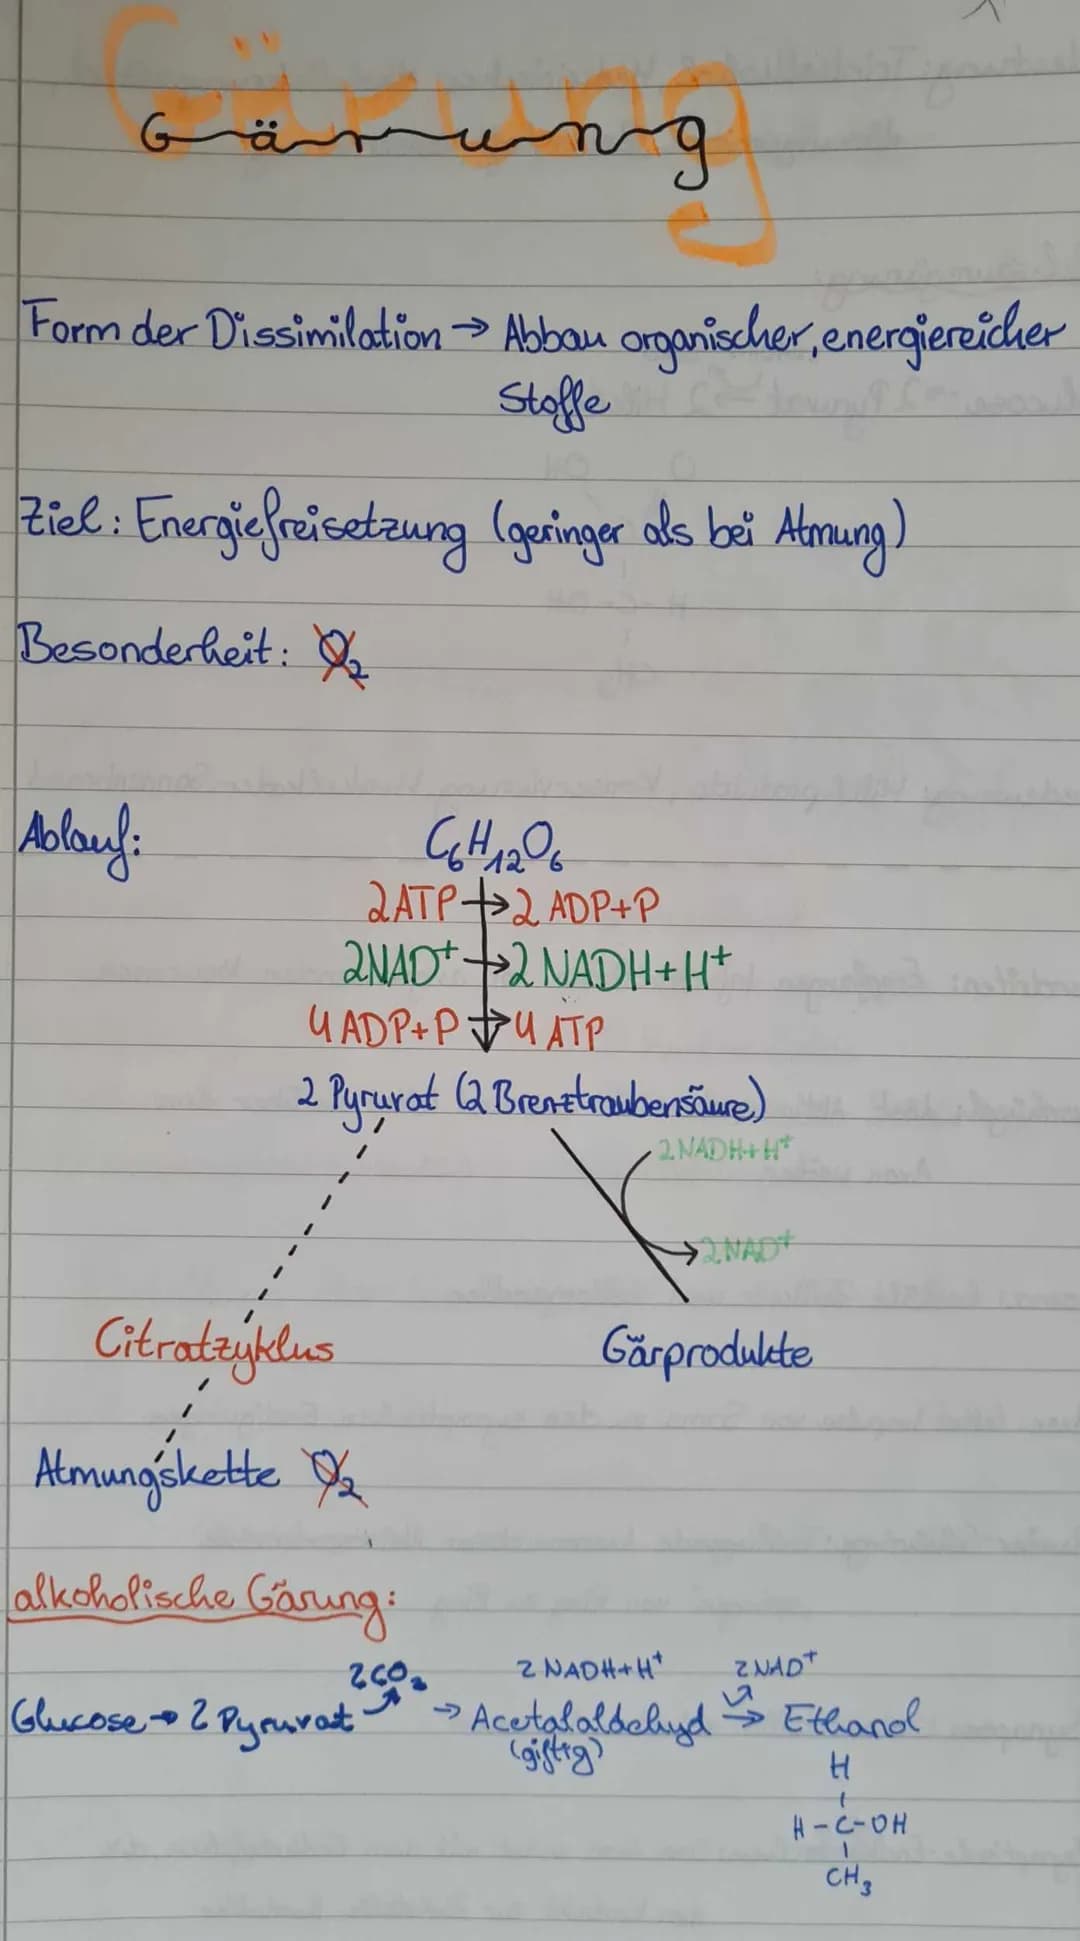 Gärung
Form der Dissimilation → Abbau organischer, energiereicher
Stoffe
Ziel: Energiefreisetzung (geringer als bei Atmung)
Besonderheit: O₂
Ablauf:
C₆H₁₂O₆
2ATP → 2 ADP+P
2NAD⁺ → 2 NADH+H⁺
4 ADP+P → 4 ATP
2 Pyruvat (2 Brenztraubensäure)
2 NADH+H⁺
2 NAD⁺
Citratzyklus
Gärprodukte
Atmungskette O₂
alkoholische Gärung:
2CO₂ 2 NADH+H⁺ 2 NAD⁺
Glucose → 2 Pyruvat → Acetalaldehyd → Ethanol
(giftig)
H
H-C-OH
CH₃